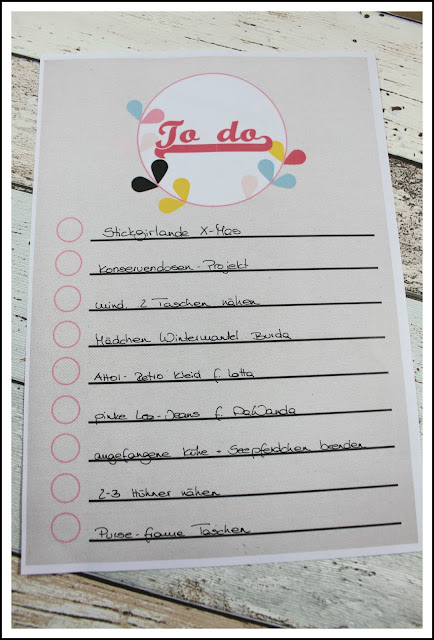 To do
Stickgirlande X-Mas
Konservendosen-Projekt
mind. 2 Taschen nähen
Mädchen Wintermantel Burda
Ahoi-Retro Kleid f. Lotta
pinke Leo-Jeans f. DaWanda
angefangene Kühe + Seepferdchen beenden
2-3 Hühner nähen
Purse-frame Taschen